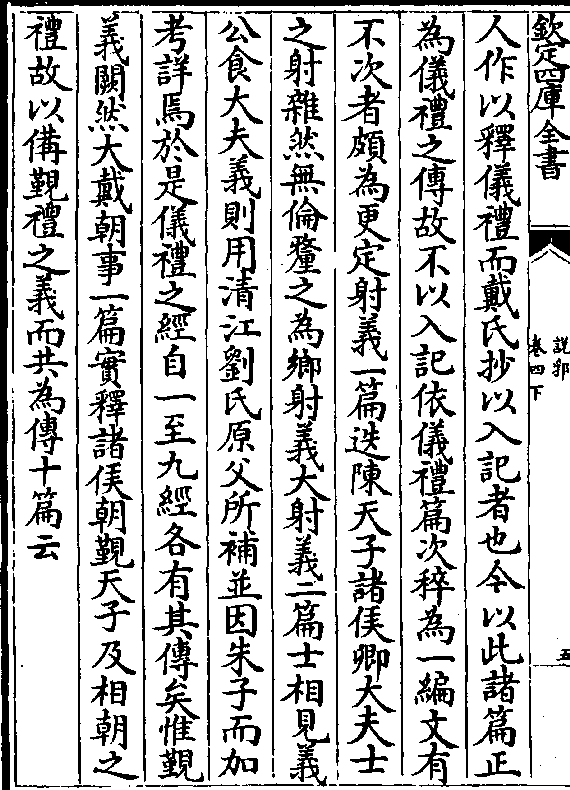 欽定四庫全書
說郛
卷四下
五
人作以釋儀禮而戴氏抄以入記者也今以此諸篇正
為儀禮之傳故不以入記依儀禮篇次稡為一編文有
不次者頗為更定射義一篇迭陳天子諸侯卿大夫士
之射雜然無倫釐之為鄉射義大射義二篇士相見義
公食大夫義則用清江劉氏原父所補並因朱子而加
考詳焉於是儀禮之經自一至九經各有其傳矣惟覲
義闕然大戴朝事一篇實釋諸侯朝覲天子及相朝之
禮故以備覲禮之義而共為傳十篇云